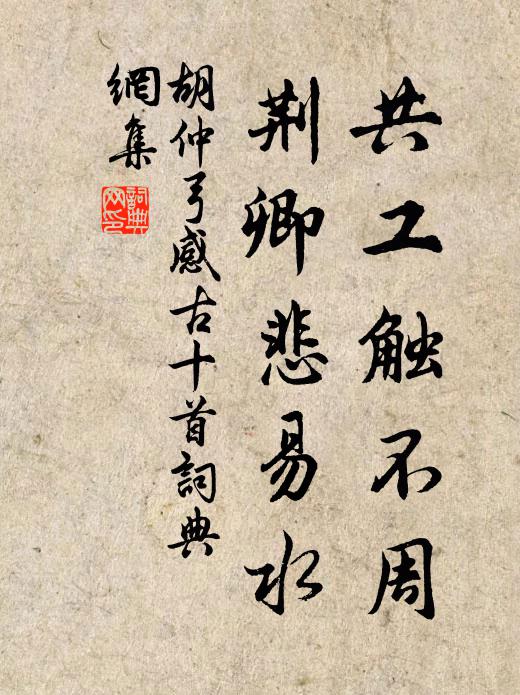 共工触不周
荆卿悲易水
胡仲弓感古十首詞典
網集
詞典
网印